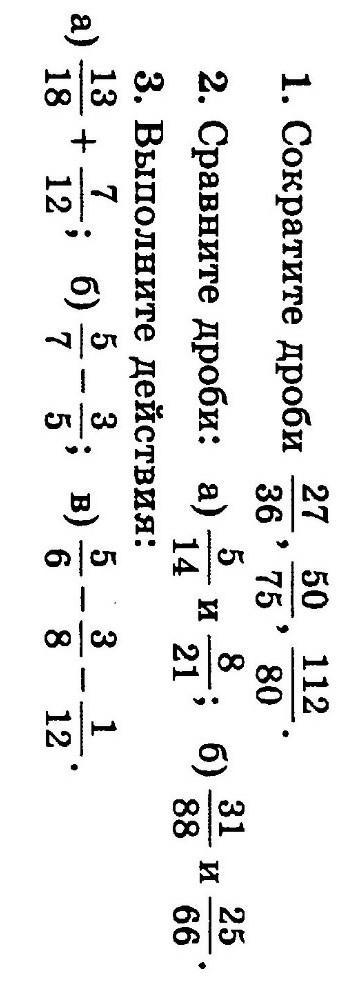 1. Сократите дроби 27/36, 50/75, 112/80.
2. Сравните дроби: а) 5/14 и 8/21; б) 31/88 и 25/66.
3. Выполните действия:
а) 13/18 + 7/12; б) 5/7 − 3/5; в) 5/6 − 3/8 − 1/12.